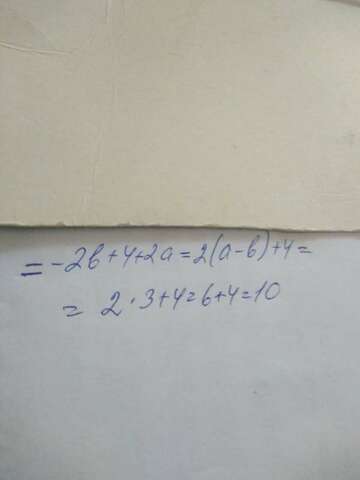 = -2b+4+2a=2(a-b)+4=
= 2·3+4=6+4=10